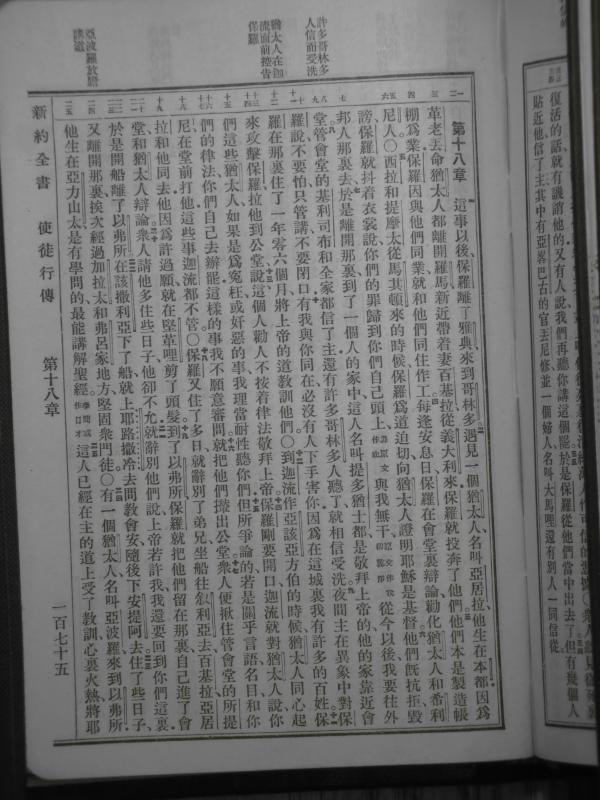 復活的話就有譏誚他的又有人說我們再聽你講這個罷於是保羅從他們當中出去了但有幾個人
貼近他信了主其中有亞畧巴古的官丟尼修並一個婦人名叫大馬哩還有別人一同信從
許多哥林多人信而受洗
猶太人在迦流面前控告保羅
亞波羅放膽講道
第十八章 這事以後保羅離了雅典來到哥林多遇見一個猶太人名叫亞居拉他生在本都因爲
革老丟命猶太人都離開羅馬新近帶着妻百基拉從義大利來保羅就投奔了他們他們本是製造帳
棚爲業保羅因與他們同業就和他們同住作工每逢安息日保羅在會堂裏辯論勸化猶太人和希利
尼人○西拉和提摩太從馬其頓來的時候保羅爲道迫切向猶太人證明耶穌是基督他們旣抗拒毀
謗保羅就抖着衣裳說你們的罪歸到你們自己頭上與我無干從今以後我要往外
邦人那裏去於是離開那裏到了一個人的家中這人名叫提多猶士都是敬拜上帝的他的家靠近會
堂管會堂的基利司布和全家都信了主還有許多哥林多人聽了就相信受洗夜間主在異象中對保
羅說不要怕只管講不要閉口有我與你同在必沒有人下手害你因爲在這城裏我有許多的百姓保
羅在那裏住了一年零六個月將上帝的道教訓他們○到迦流作亞該亞方伯的時候猶太人同心起
來攻擊保羅拉他到公堂說這個人勸人不按着律法敬拜上帝保羅剛要開口迦流就對猶太人說你
們這些猶太人如果是爲冤枉或奸惡的事我理當耐性聽你們但所爭論的若是關乎言語名目和你
們的律法你們自己去辦罷這樣的事我不願意審問就把他們攆出公堂衆人便揪住管會堂的所提
尼在堂前打他這些事迦流都不管○保羅又住了多日就辭別了弟兄坐船往叙利亞去百基拉亞居
拉和他同去他因爲許過願就在堅革哩剪了頭髮到了以弗所保羅就把他們留在那裏自己進了會
堂和猶太人辯論衆人請他多住些日子他卻不允就辭別他們說上帝若許我我還要回到你們這裏
於是開船離了以弗所在該撒利亞下了船就上耶路撒冷去問教會安隨後下安提阿去住了些日子
又離開那裏挨次經過加拉太和弗呂家地方堅固衆門徒○有一個猶太人名叫亞波羅來到以弗所
他生在亞力山太是有學問的最能講解聖經學問或作口才這人已經在主的道上受了教訓心裏火熱將耶
新約全書 使徒行傳 第十八章 一百七十五